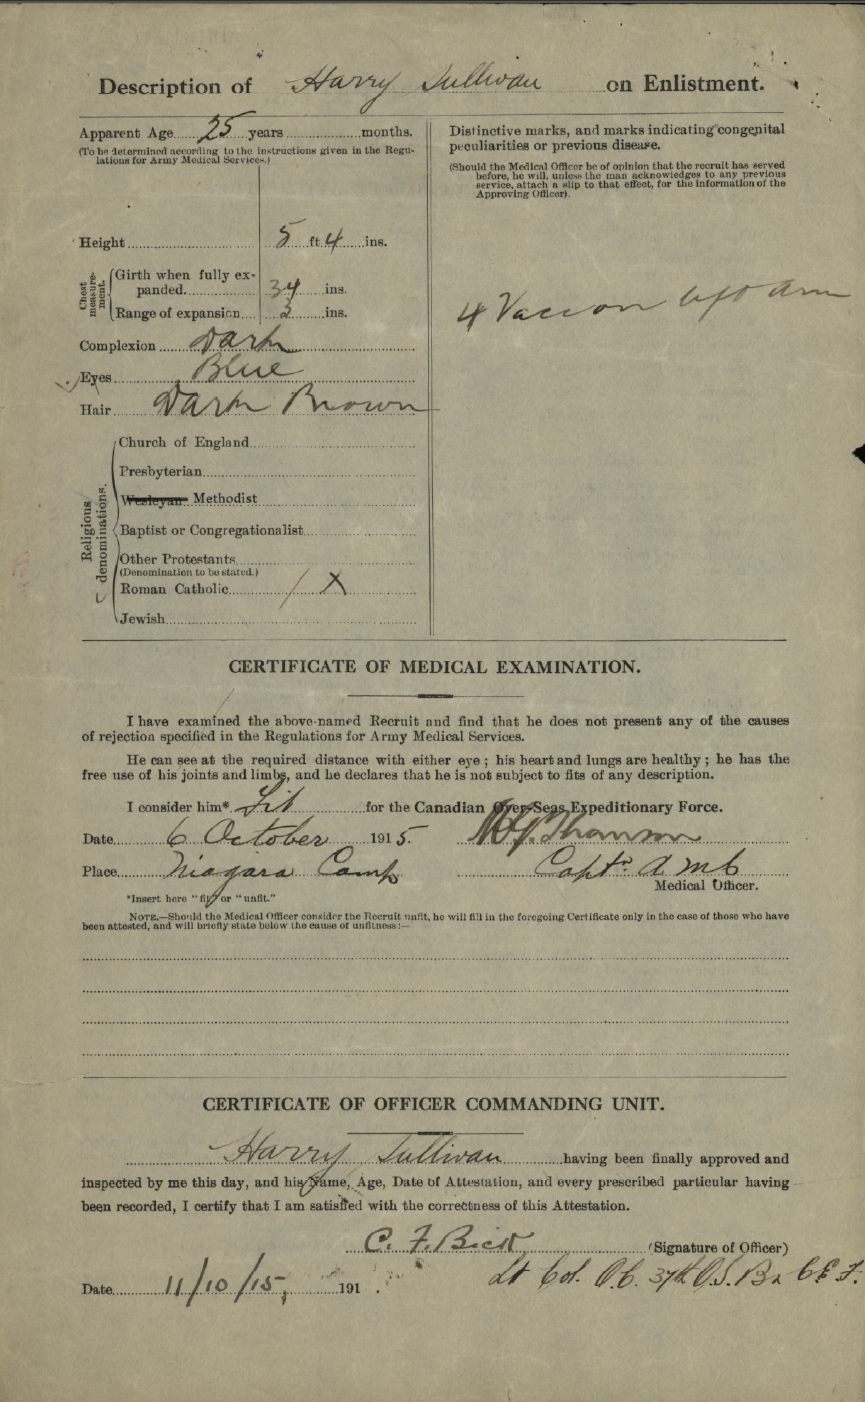 Description of Harry Sullivan on Enlistment.
Apparent Age 25 years months.
(To be determined according to the instructions given in the Regu-
lations for Army Medical Services.)
Height 5 ft. 4 ins.
Chest measure-ment.
Girth when fully ex-
panded 34 ins.
Range of expansion 3 ins.
Complexion Dark
Eyes Blue
Hair Dark Brown
Religious denominations.
Church of England
Presbyterian
Wesleyan Methodist
Baptist or Congregationalist
Other Protestants
(Denomination to be stated.)
Roman Catholic / X
Jewish
Distinctive marks, and marks indicating congenital
peculiarities or previous disease.
(Should the Medical Officer be of opinion that the recruit has served
before, he will, unless the man acknowledges to any previous
service, attach a slip to that effect, for the information of the
Approving Officer).
4 Vaccon left arm
CERTIFICATE OF MEDICAL EXAMINATION.
I have examined the above-named Recruit and find that he does not present any of the causes
of rejection specified in the Regulations for Army Medical Services.
He can see at the required distance with either eye; his heart and lungs are healthy; he has the
free use of his joints and limbs, and he declares that he is not subject to fits of any description.
I consider him* Fit for the Canadian Over-Seas Expeditionary Force.
Date 6 October 1915.
Place Niagara Camp Capt. A M C
Medical Officer.
*Insert here "fit" or "unfit."
NOTE.—Should the Medical Officer consider the Recruit unfit, he will fill in the foregoing Certificate only in the case of those who have
been attested, and will briefly state below the cause of unfitness:—
CERTIFICATE OF OFFICER COMMANDING UNIT.
Harry Sullivan having been finally approved and
inspected by me this day, and his Name, Age, Date of Attestation, and every prescribed particular having
been recorded, I certify that I am satisfied with the correctness of this Attestation.
C. F. Bick (Signature of Officer)
Lt Col. O.C. 37th O.S. Bn C.E.F.
Date 11/10/15, 191 .